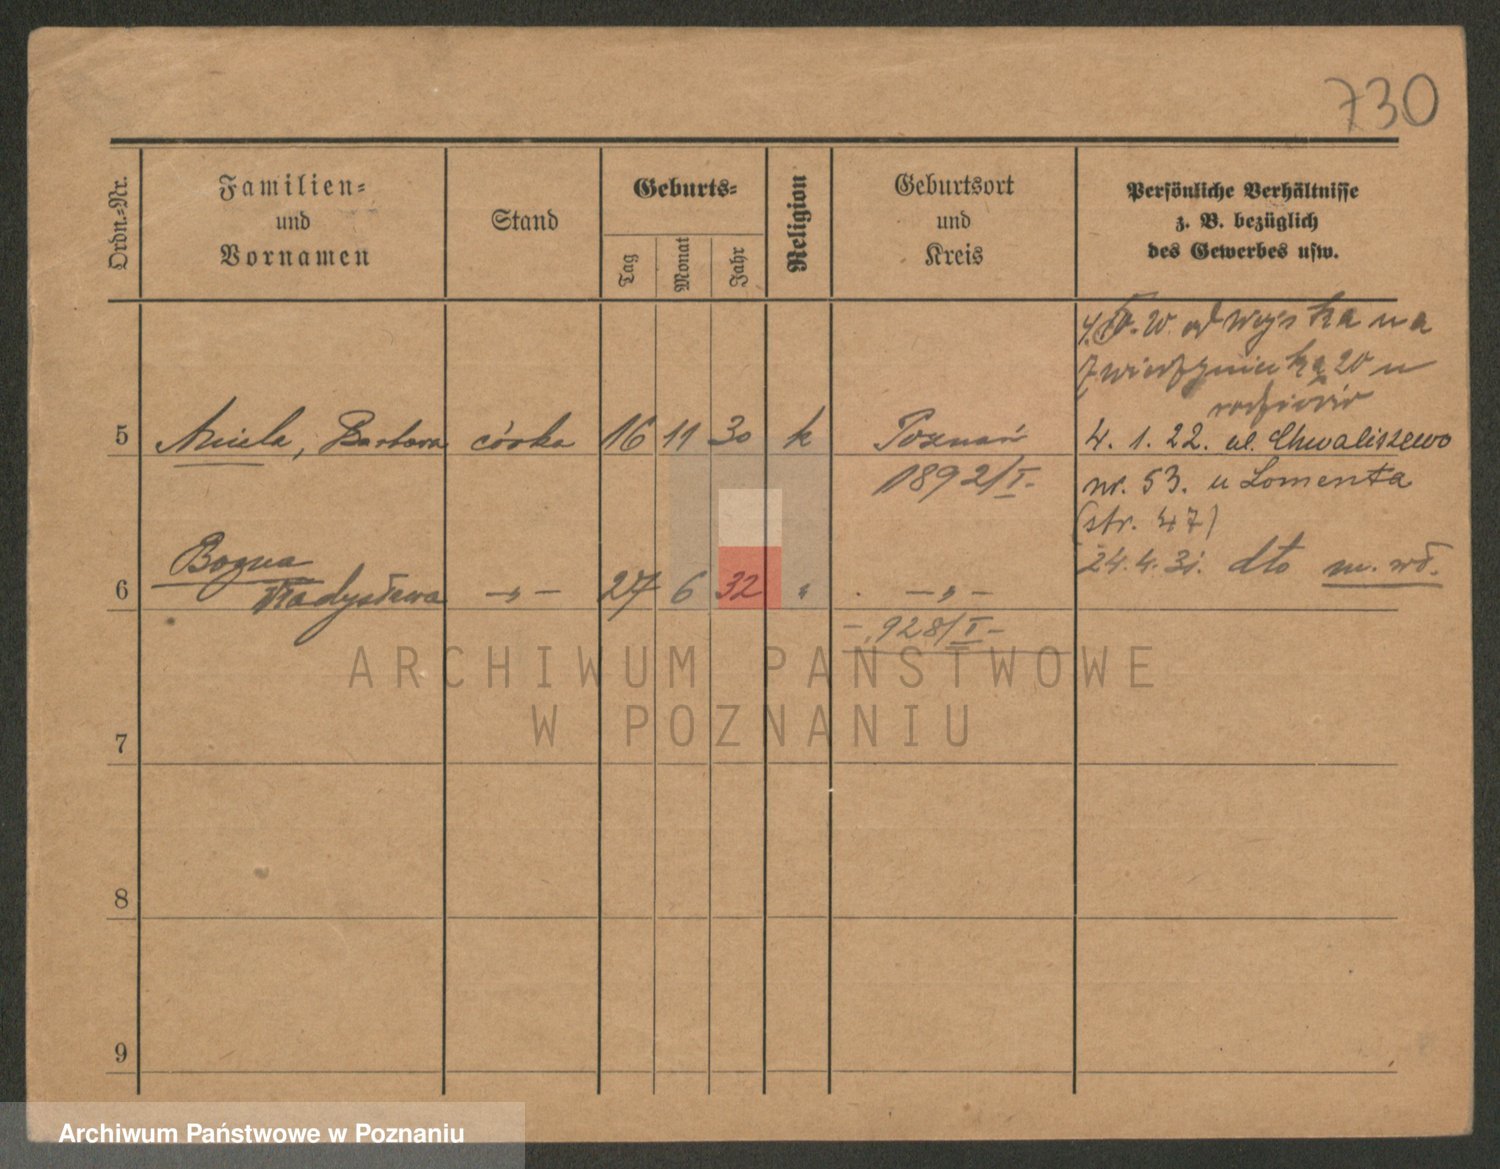 730
Ordn.-Nr.
Familien-
und
Vornamen
Stand
Geburts-
Tag
Monat
Jahr
Religion
Geburtsort
und
Kreis
Persönliche Verhältnisse
z. B. bezüglich
des Gewerbes usw.
od wojska na
20 u
rodziców
5 Aniela, Barbara córka 16 11 30 k Poznań 4. 1. 22. ul. Chwaliszewo
1892/I. nr. 53. u Lomenta
(str. 47)
24. 4. 31. dto m. wł.
Bogna
6 Władysława -„- 27 6 32 „ -„-
928/I-
7
8
9
ARCHIWUM PAŃSTWOWE
W POZNANIU
Archiwum Państwowe w Poznaniu